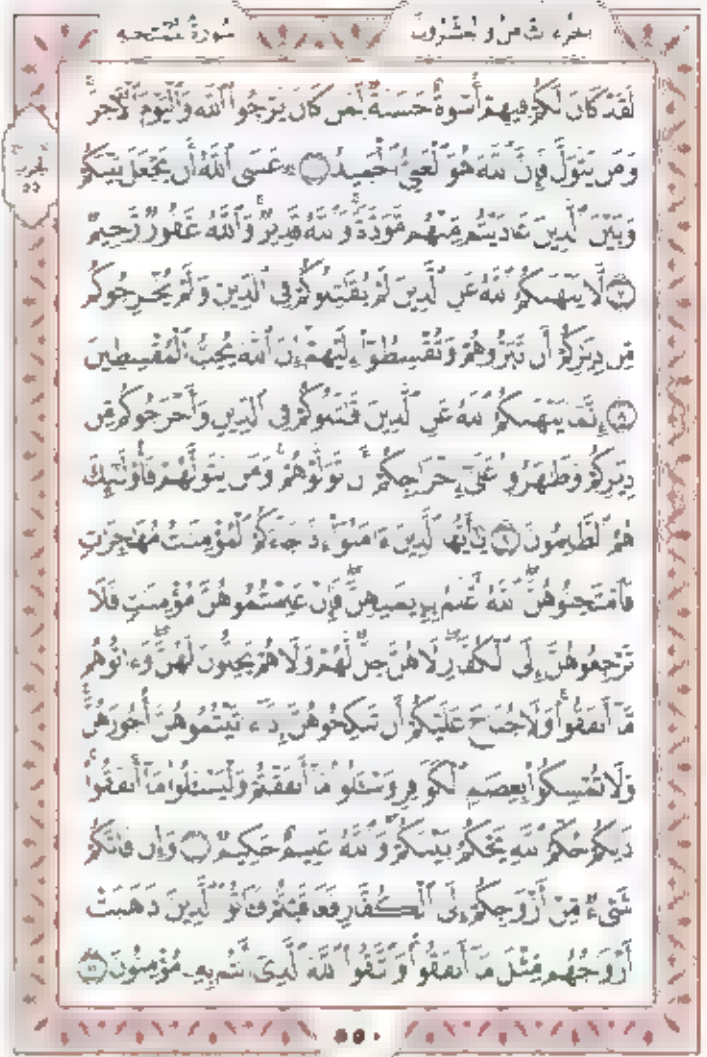 سُورَةُ الْمُمْتَحَنَةِ
الجُزءُ الثَّامِنُ وَالعِشْرُونَ
لَقَدْ كَانَ لَكُمْ فِيهِمْ أُسْوَةٌ حَسَنَةٌ لِّمَن كَانَ يَرْجُوا۟ ٱللَّهَ وَٱلْيَوْمَ ٱلْءَاخِرَ ۚ
وَمَن يَتَوَلَّ فَإِنَّ ٱللَّهَ هُوَ ٱلْغَنِىُّ ٱلْحَمِيدُ ۝٦ ۞ عَسَى ٱللَّهُ أَن يَجْعَلَ بَيْنَكُمْ
وَبَيْنَ ٱلَّذِينَ عَادَيْتُم مِّنْهُم مَّوَدَّةً ۚ وَٱللَّهُ قَدِيرٌ ۚ وَٱللَّهُ غَفُورٌ رَّحِيمٌ
۝٧ لَّا يَنْهَىٰكُمُ ٱللَّهُ عَنِ ٱلَّذِينَ لَمْ يُقَٰتِلُوكُمْ فِى ٱلدِّينِ وَلَمْ يُخْرِجُوكُم
مِّن دِيَٰرِكُمْ أَن تَبَرُّوهُمْ وَتُقْسِطُوٓا۟ إِلَيْهِمْ ۚ إِنَّ ٱللَّهَ يُحِبُّ ٱلْمُقْسِطِينَ
۝٨ إِنَّمَا يَنْهَىٰكُمُ ٱللَّهُ عَنِ ٱلَّذِينَ قَٰتَلُوكُمْ فِى ٱلدِّينِ وَأَخْرَجُوكُم مِّن
دِيَٰرِكُمْ وَظَٰهَرُوا۟ عَلَىٰٓ إِخْرَاجِكُمْ أَن تَوَلَّوْهُمْ ۚ وَمَن يَتَوَلَّهُمْ فَأُو۟لَٰٓئِكَ
هُمُ ٱلظَّٰلِمُونَ ۝٩ يَٰٓأَيُّهَا ٱلَّذِينَ ءَامَنُوٓا۟ إِذَا جَآءَكُمُ ٱلْمُؤْمِنَٰتُ مُهَٰجِرَٰتٍ
فَٱمْتَحِنُوهُنَّ ۖ ٱللَّهُ أَعْلَمُ بِإِيمَٰنِهِنَّ ۖ فَإِنْ عَلِمْتُمُوهُنَّ مُؤْمِنَٰتٍ فَلَا
تَرْجِعُوهُنَّ إِلَى ٱلْكُفَّارِ ۖ لَا هُنَّ حِلٌّ لَّهُمْ وَلَا هُمْ يَحِلُّونَ لَهُنَّ ۖ وَءَاتُوهُم
مَّآ أَنفَقُوا۟ ۚ وَلَا جُنَاحَ عَلَيْكُمْ أَن تَنكِحُوهُنَّ إِذَآ ءَاتَيْتُمُوهُنَّ أُجُورَهُنَّ ۚ
وَلَا تُمْسِكُوا۟ بِعِصَمِ ٱلْكَوَافِرِ وَسْـَٔلُوا۟ مَآ أَنفَقْتُمْ وَلْيَسْـَٔلُوا۟ مَآ أَنفَقُوا۟ ۚ
ذَٰلِكُمْ حُكْمُ ٱللَّهِ ۖ يَحْكُمُ بَيْنَكُمْ ۚ وَٱللَّهُ عَلِيمٌ حَكِيمٌ ۝١٠ وَإِن فَاتَكُمْ
شَىْءٌ مِّنْ أَزْوَٰجِكُمْ إِلَى ٱلْكُفَّارِ فَعَاقَبْتُمْ فَـَٔاتُوا۟ ٱلَّذِينَ ذَهَبَتْ
أَزْوَٰجُهُم مِّثْلَ مَآ أَنفَقُوا۟ ۚ وَٱتَّقُوا۟ ٱللَّهَ ٱلَّذِىٓ أَنتُم بِهِۦ مُؤْمِنُونَ ۝١١
٥٥٠